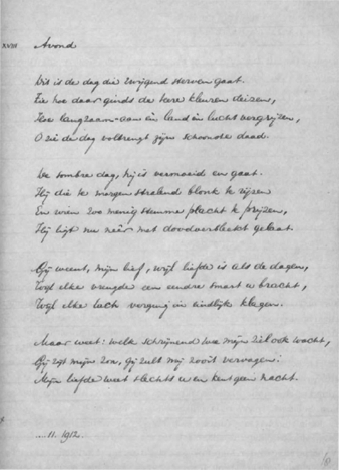 XVIII
Avond
Dit is de dag die zwijgend sterven gaat.
Zie hoe daar ginds de teere kleuren deizen,
Hoe langzaam-aan in land en lucht vergrijzen,
O zie de dag volbrengt zijn schoonste daad.
De sombre dag, hij is vermoeid en gaat.
Hij die te morgen stralend blonk te rijzen
En wien zoo menig stemmen placht te prijzen,
Hij ligt nu neêr met doodverbleekt gelaat.
Gij weent, mijn lief, wijl liefde is als de dagen,
Wijl elke vreugde een andre smart u bracht,
Wijl elke lach verging in eindlijk klagen.
Maar weet: welk schrijnend wee mijn ziel ook wacht,
Gij zijt mijn zon, gij zult mij nooit vervagen:
Mijn liefde weet slechts u en kent geen nacht.
....11. 1912.